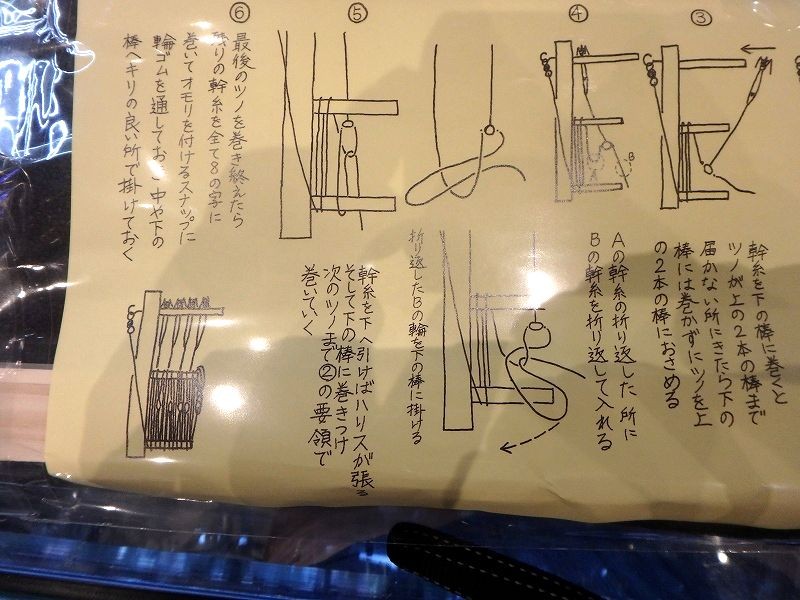 ③
幹糸を下の棒に巻くと
ツノが上の2本の棒まで
届かない所にきたら下の
棒には巻かずにツノを上
の2本の棒におさめる
④
B
Aの幹糸の折り返した所に
Bの幹糸を折り返して入れる
折り返したBの輪を下の棒に掛ける
⑤
幹糸を下へ引けばハリスが張る
そして下の棒に巻きつけ
次のツノまで②の要領で
巻いていく
⑥
最後のツノを巻き終えたら
残りの幹糸を全て8の字に
巻いてオモリを付けるスナップに
輪ゴムを通しておき中や下の
棒へキリの良い所で掛けておく